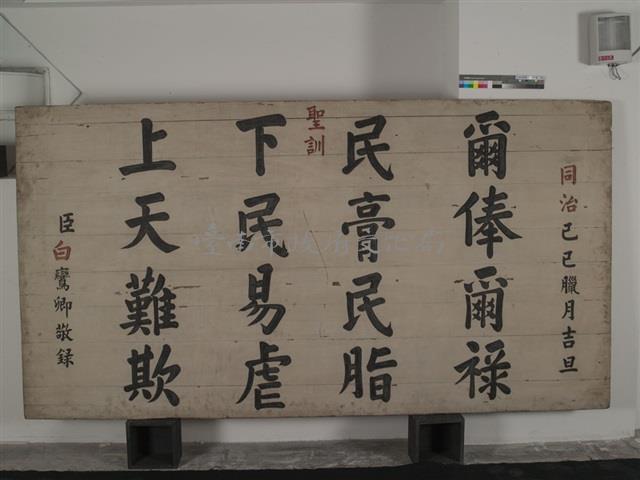 聖訓
同治己巳臘月吉旦
爾俸爾祿
民膏民脂
下民易虐
上天難欺
臣白鸞卿敬録
臺南市政府文化局